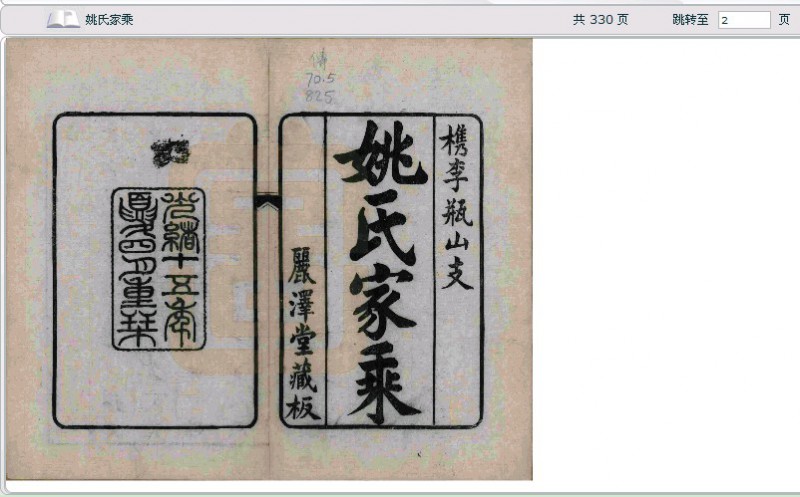 姚氏家乘
共 330 页
跳转至 2 页
傳
70.5
825
檇李瓶山支
姚氏家乘
麗澤堂藏板
光緒十五年
夏四月重栞